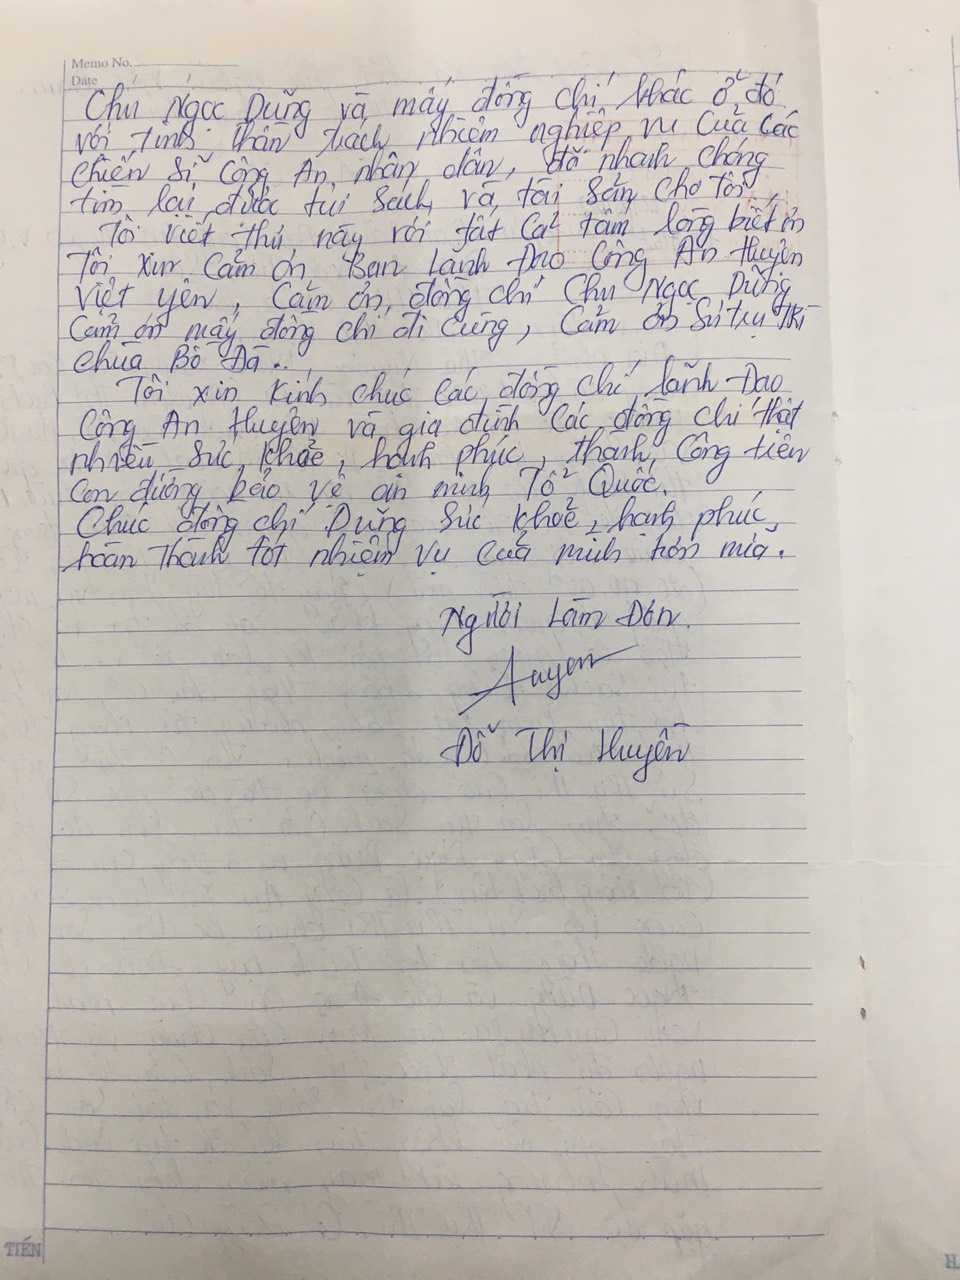 Memo No.
Date / /
Chu Ngọc Dũng và mấy đồng chí khác ở đó
với tinh thần trách nhiệm nghiệp vụ của các
chiến sĩ Công An nhân dân, đã nhanh chóng
tìm lại được túi sách và tài sản cho tôi
Tôi viết thư này với tất cả tấm lòng biết ơn
Tôi xin cảm ơn Ban Lãnh Đạo Công An Huyện
Việt Yên, Cảm ơn đồng chí Chu Ngọc Dũng
Cảm ơn mấy đồng chí đi cùng, cảm ơn Sư trụ trì
chùa Bổ Đà..
Tôi xin kính chúc các đồng chí lãnh Đạo
Công An Huyện và gia đình các đồng chí thật
nhiều sức khỏe, hạnh phúc, thành công trên
con đường bảo vệ an ninh Tổ Quốc.
Chúc đồng chí Dũng sức khoẻ, hạnh phúc,
hoàn thành tốt nhiệm vụ của mình hơn nữa.
Người Làm Đơn.
Huyen
Đỗ Thị Huyền
TIẾN
H